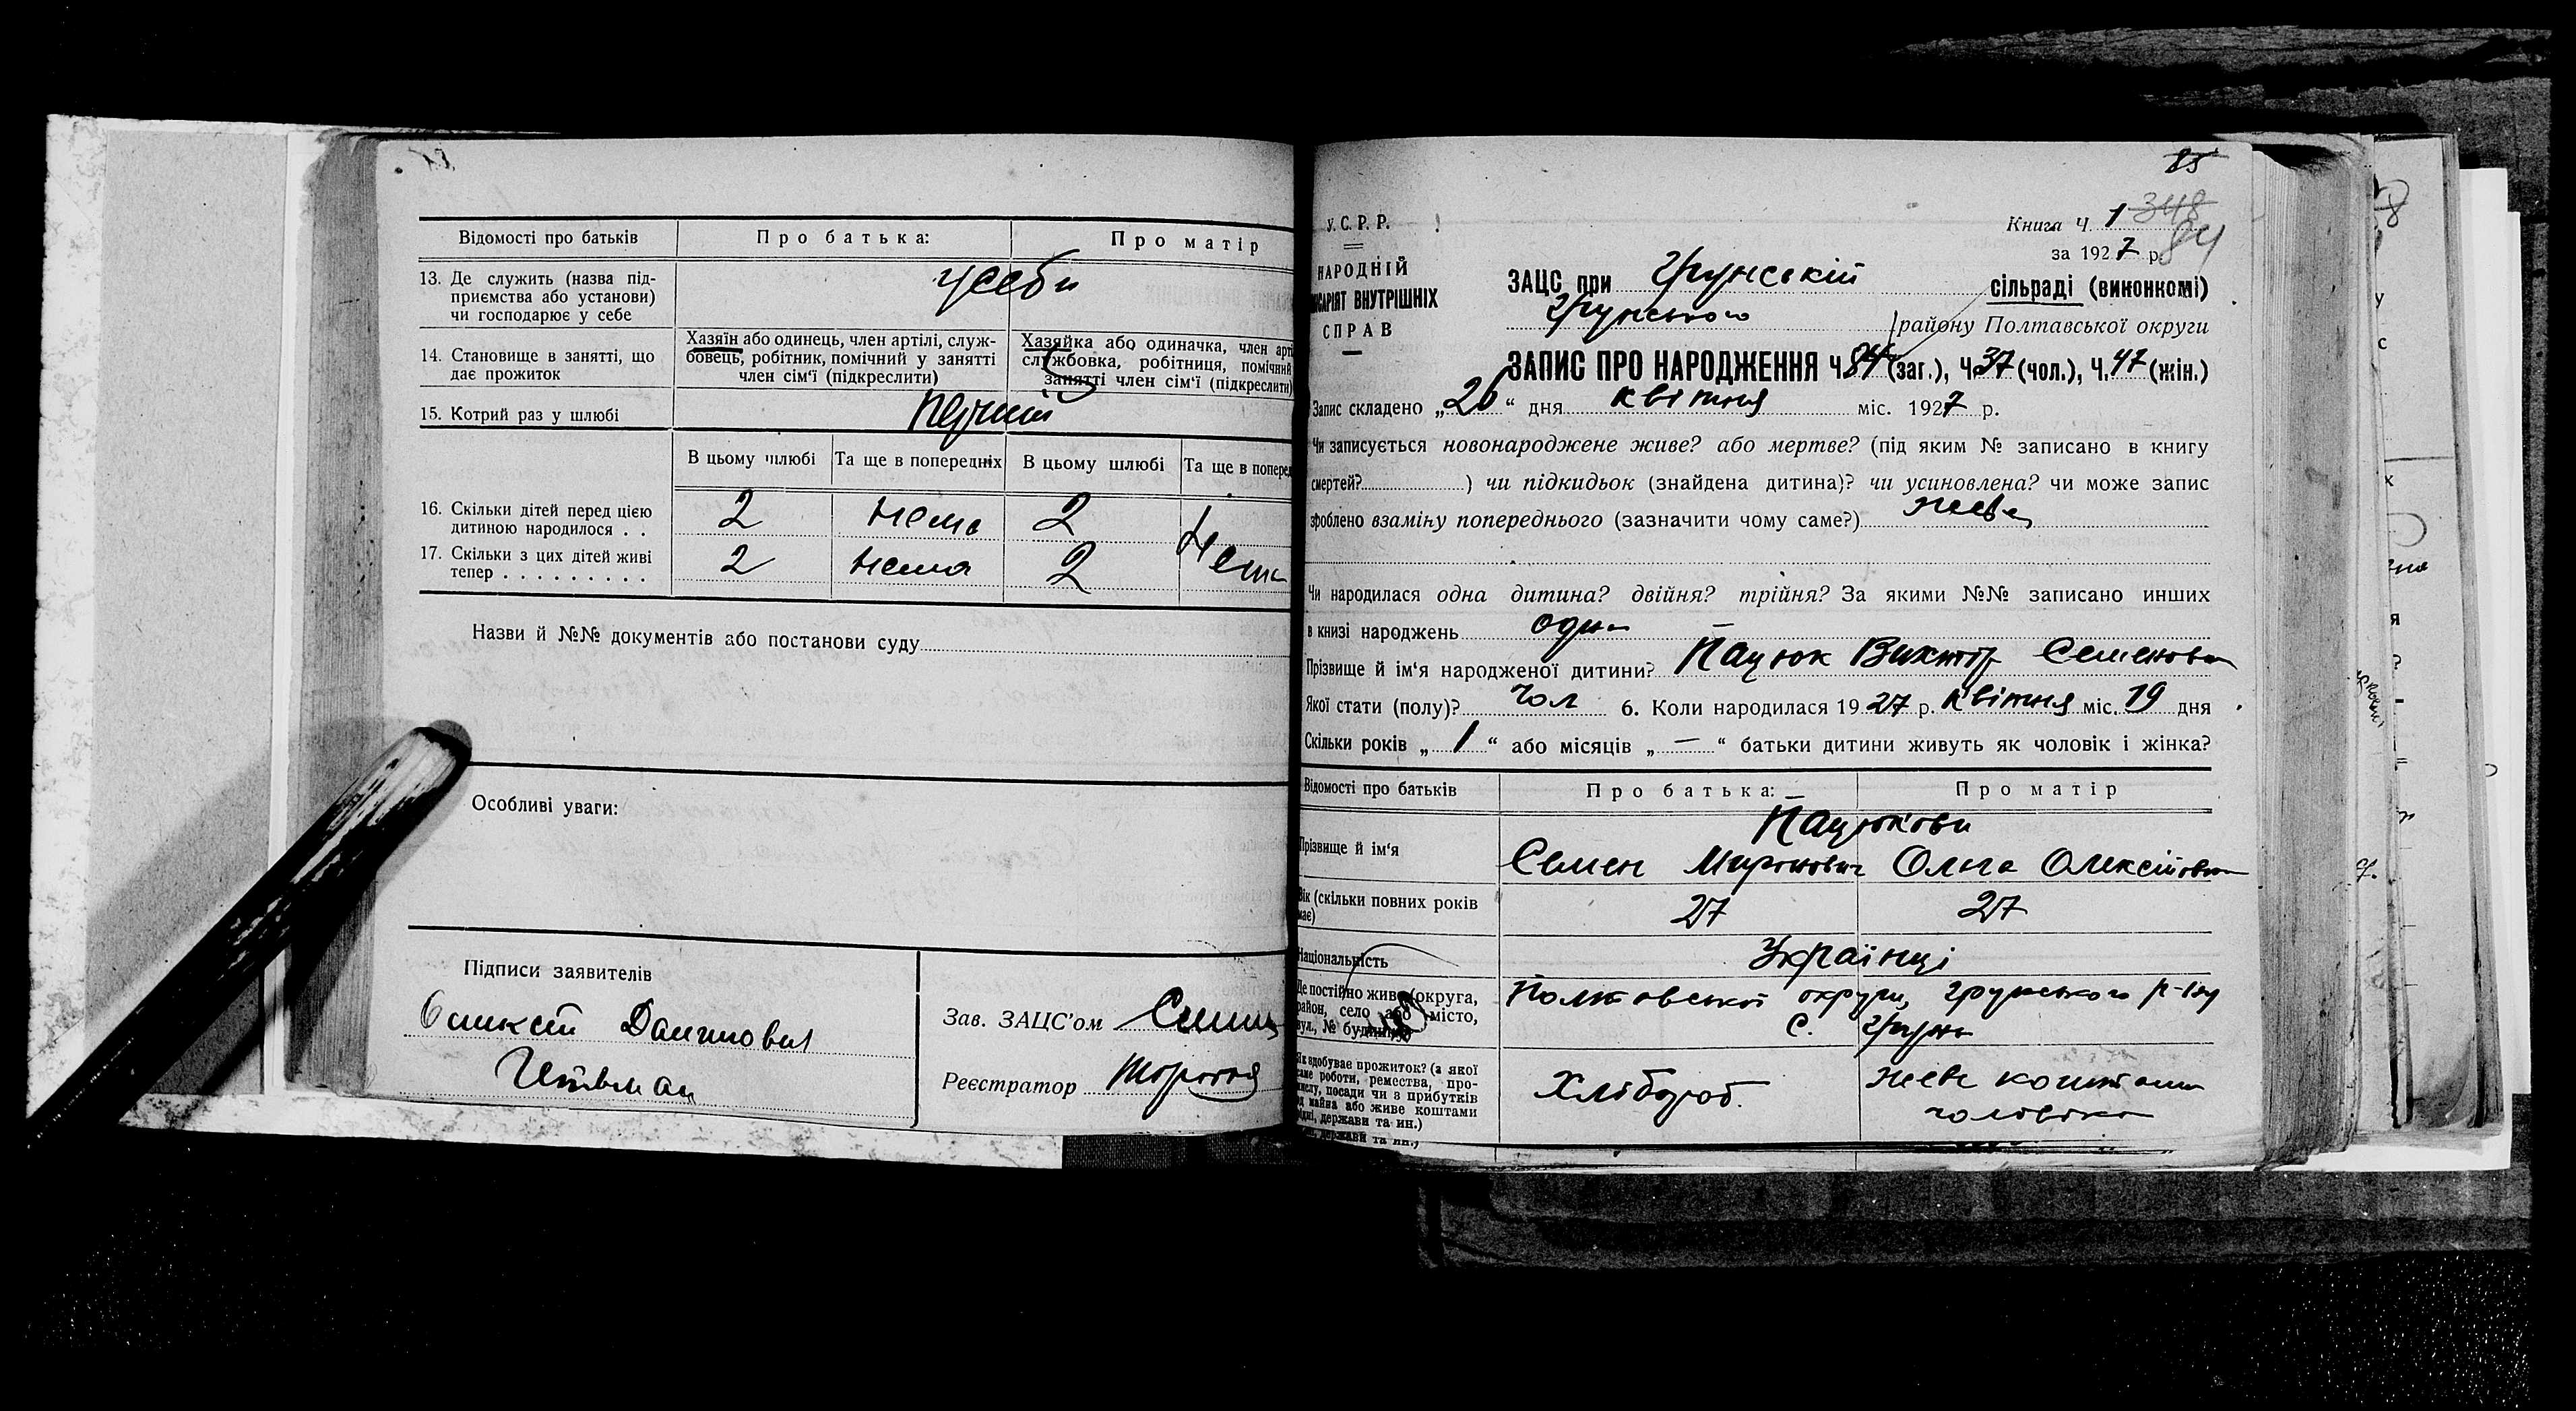 Відомості про батьків
Про батька:
Про матір
13. Де служить (назва під-
приємства або установи)
чи господарює у себе
усеби
14. Становище в занятті, що
дає прожиток
Хазяїн або одинець, член артілі, служ-
бовець, робітник, помічний у занятті
член сім'ї (підкреслити)
Хазяйка або одиначка, член арті
службовка, робітниця, помічний
занятті член сім'ї (підкреслити)
15. Котрий раз у шлюбі
перший
В цьому шлюбі
Та ще в попередніх
В цьому шлюбі
Та ще в поперед
16. Скільки дітей перед цією
дитиною народилося . .
2 нема 2 нема
17. Скільки з цих дітей живі
тепер . . . . . . . . .
2 нема 2
Назви й №№ документів або постанови суду
Особливі уваги:
Підписи заявителів
Зав. ЗАЦС'ом
Реєстратор
85
У.С.Р.Р.
НАРОДНІЙ
КОМІСАРІЯТ ВНУТРІШНІХ
СПРАВ
Книга Ч. 1 348
за 1927 р. 84
ЗАЦС при Грунській сільраді (виконкомі)
Грунського району Полтавської округи
ЗАПИС ПРО НАРОДЖЕННЯ Ч. 84 (заг.), Ч. 37 (чол.), Ч. 47 (жін.)
Запис складено „26“ дня квітня міс. 1927 р.
Чи записується новонароджене живе? або мертве? (під яким № записано в книгу
смертей? ) чи підкидьок (знайдена дитина)? чи усиновлена? чи може запис
зроблено взаміну попереднього (зазначити чому саме?) живе
Чи народилася одна дитина? двійня? трійня? За якими №№ записано инших
в книзі народжень одна
Прізвище й ім'я народженої дитини? Пацюк Виктор Семенович
Якої стати (полу)? чол 6. Коли народилася 1927 р. квітня міс. 19 дня
Скільки років „1“ або місяців „—“ батьки дитини живуть як чоловік і жінка?
Відомості про батьків
Про батька:
Про матір
Прізвище й ім'я
Пацюкови
Семен Миронович Ольга Олексіївна
Вік (скільки повних років
має)
27 27
Національність
Українці
Де постійно живе (округа,
район, село або місто,
вул., № будинку)
Полтавської округи, Грунського р-ну
с. Грунь
Як здобуває прожиток? (з якої
саме роботи, ремества, про-
мислу, посади чи з прибутків
од майна або живе коштами
рідні, держави та ин.)
Хлібороб.
живе коштами
чоловіка